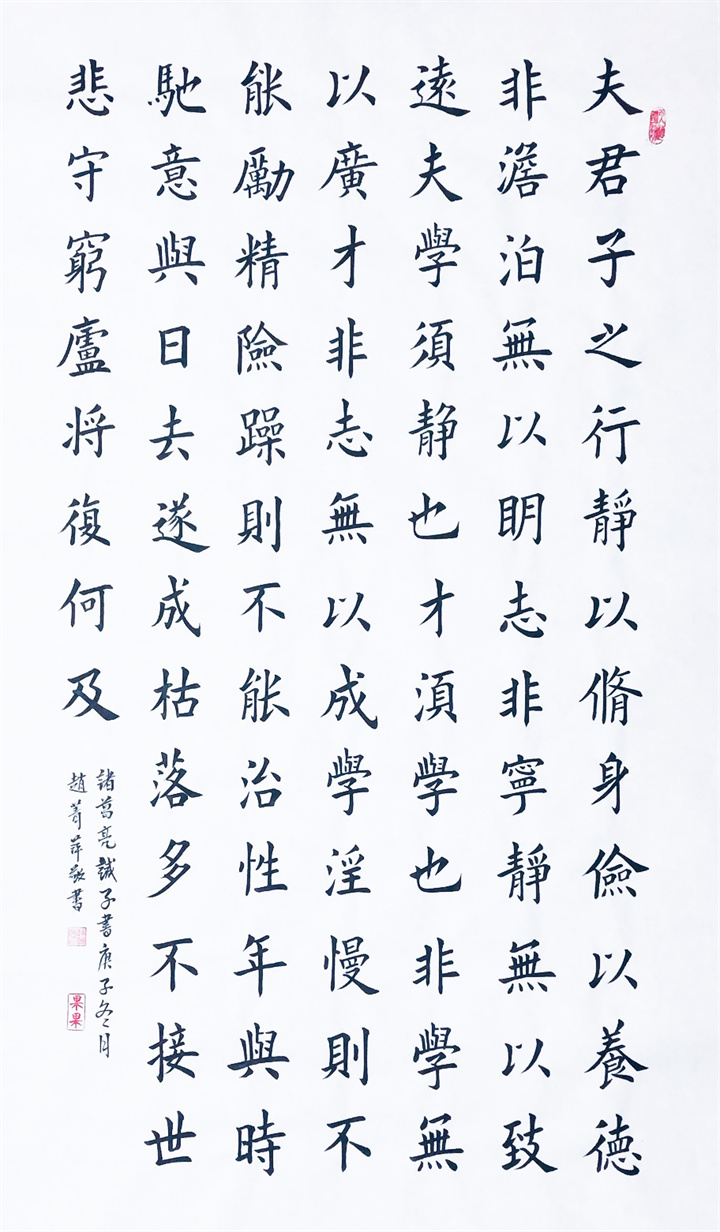 夫君子之行靜以脩身儉以養德
非澹泊無以明志非寧靜無以致
遠夫學須静也才須學也非學無
以廣才非志無以成學淫慢則不
能勵精險躁則不能治性年與時
馳意與日去遂成枯落多不接世
悲守窮廬将復何及
諸葛亮誡子書庚子冬月
趙菁萍敬書
果果